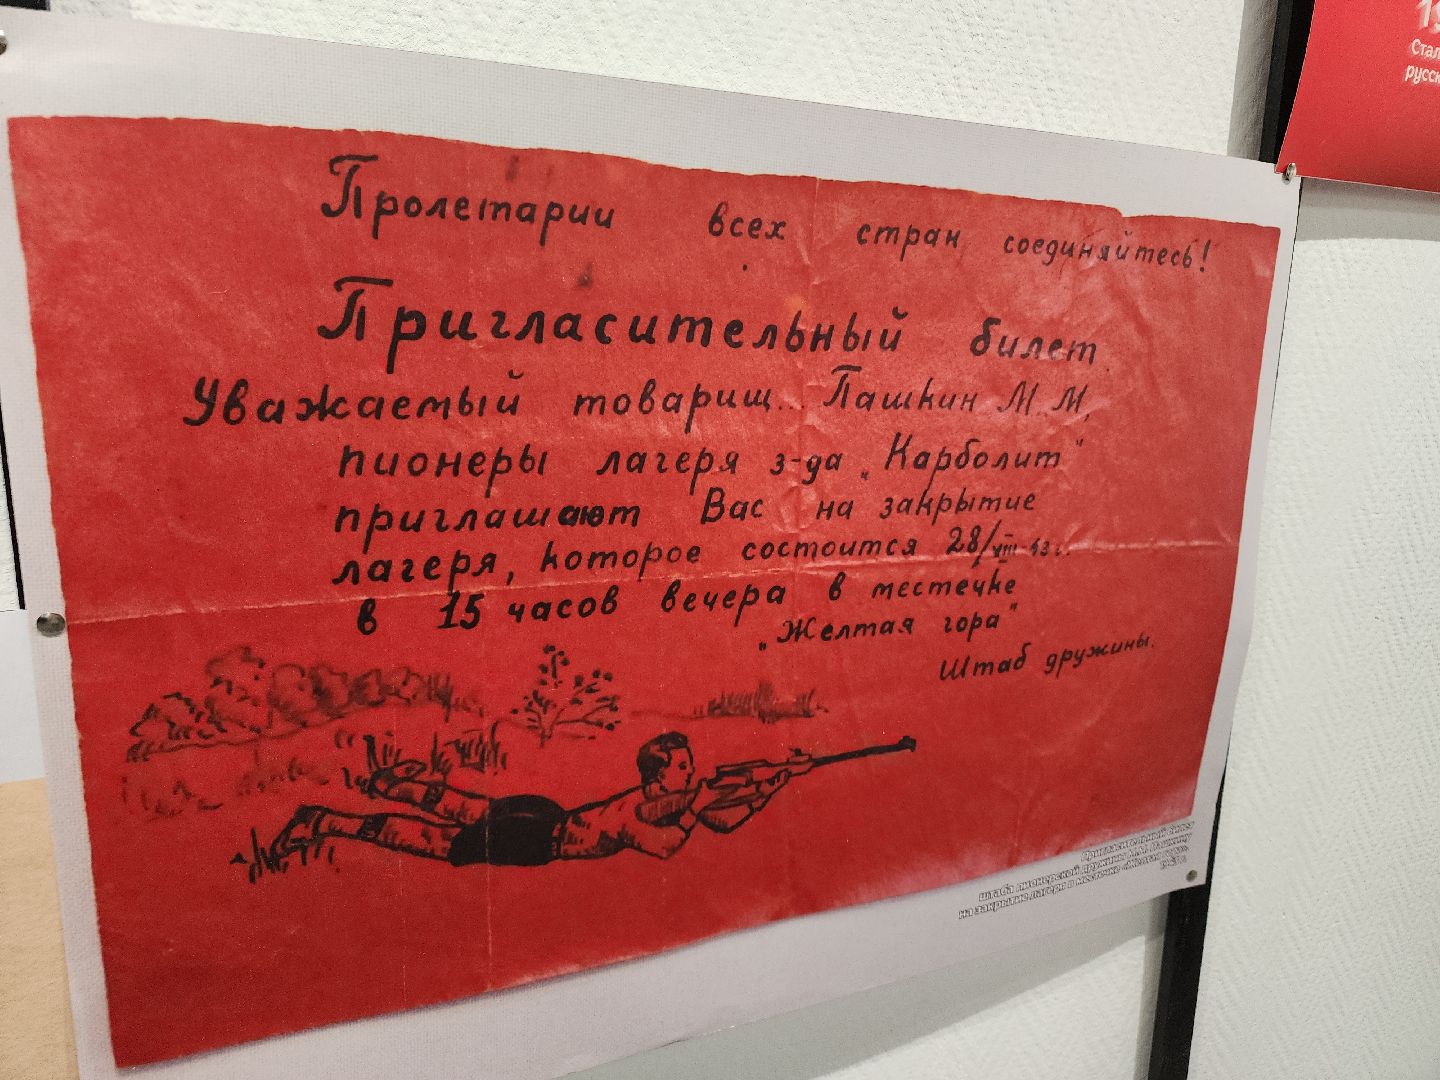 Пролетарии всех стран соединяйтесь!
Пригласительный билет
Уважаемый товарищ... Пашкин М. М,
пионеры лагеря з-да „Карболит"
приглашают Вас на закрытие
лагеря, которое состоится 28/VIII-43 г.
в 15 часов вечера в местечке
„Желтая гора"
Штаб дружины.
Пригласительный билет
штаба пионерской дружины М.М. Пашкину
на закрытие лагеря в местечке «Желтая гора»
Стал
русск